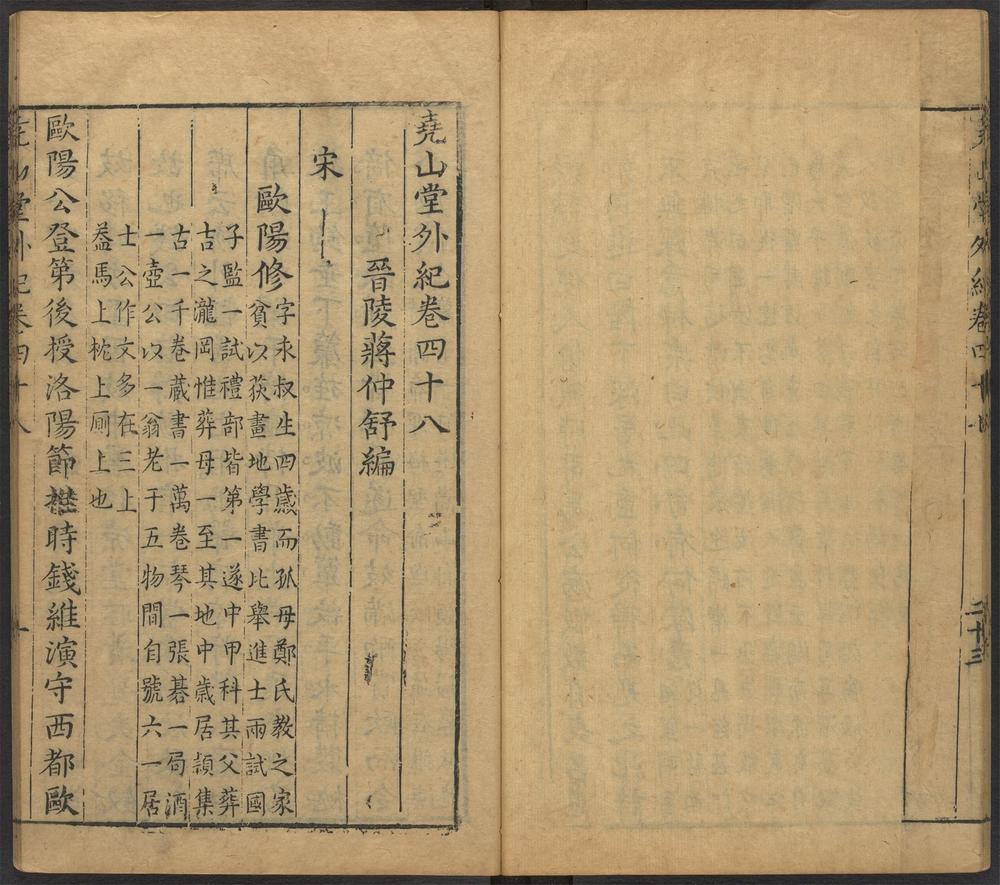 堯山堂外紀卷四十
二十三
堯山堂外紀卷四十八
晉陵蔣仲舒編
宋
歐陽修
字永叔生四歲而孤母鄭氏教之家
貧以荻畫地學書比舉進士兩試國
子監一試禮部皆第一遂中甲科其父葬
吉之瀧岡惟葬母一至其地中歲居潁集
古一千卷藏書一萬卷琴一張碁一局酒
一壺公以一翁老于五物間自號六一居
士公作文多在三上
葢馬上枕上厠上也
歐陽公登第後授洛陽節樵時錢維演守西都歐
堯山堂外紀卷四十八
一